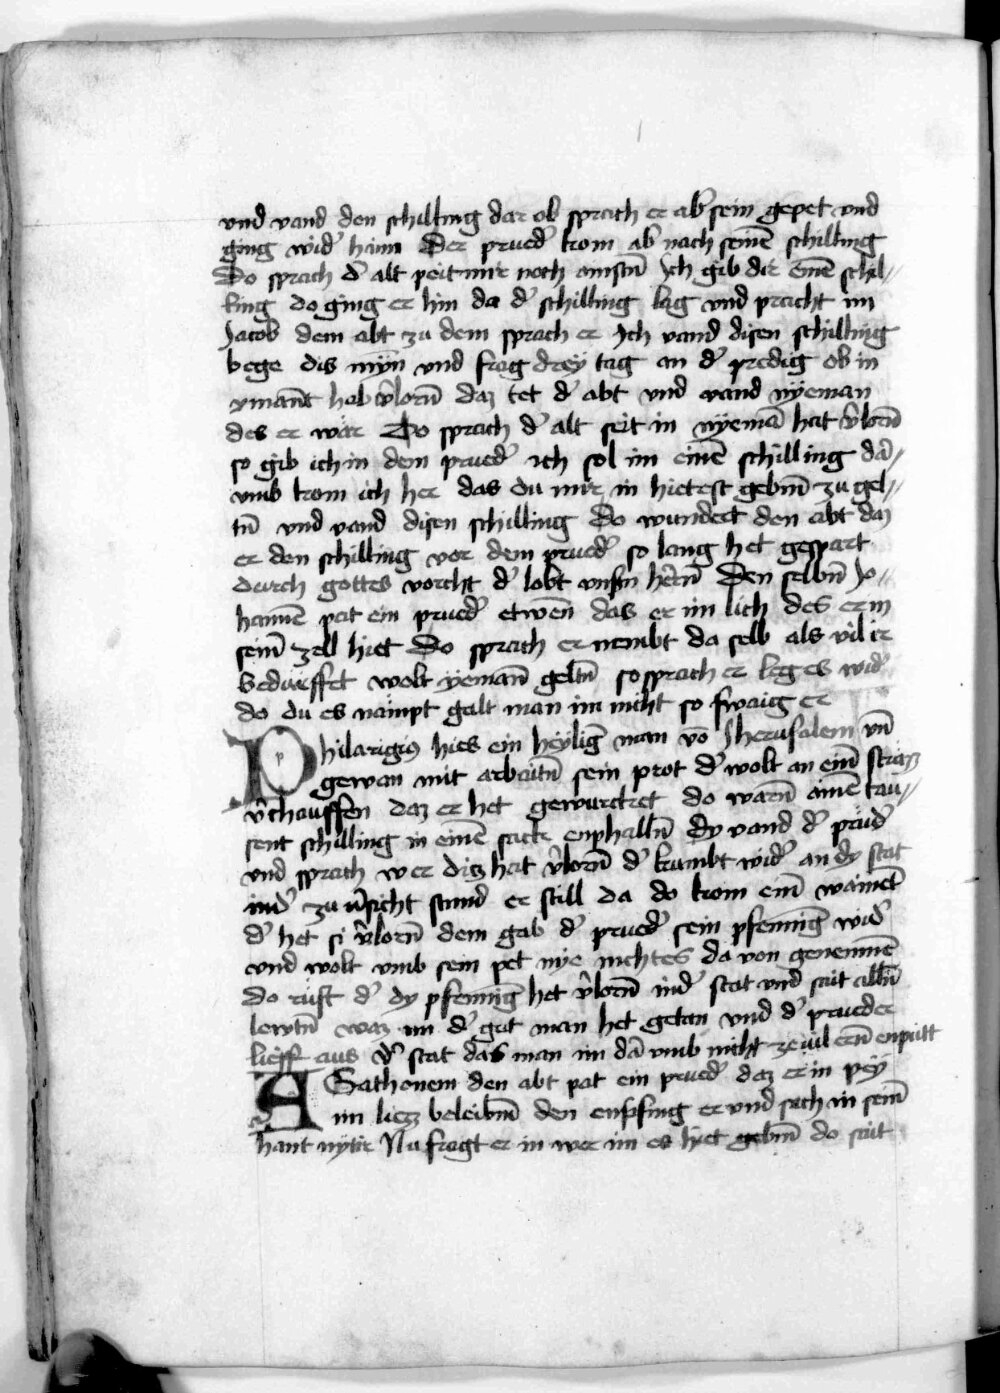 vnd vand den schilling dar ob sprach er ab sein gepet vnd
ging wid̄ haim Der prued̄ kom ab̄ nach seinē schilling
Do sprach d̄ alt peit mir noch ainstn̄ Ich gib dir einē schil„
ling do ging er hin da d̄ schilling lag vnd pracht im
Jacob dem abt zu dem sprach er Ich vand disen schilling
bege dis myn̄ vnd frag drey tag an d̄ predig ob in
ymant hab v̄lorn̄ daz tet d̄ abt vnd vand nyeman
des er wär Do sprach d̄ alt seit in nyemā hat v̄lorn̄
so gib ich in dem prued̄ ich sol im einē schilling dā„
vmb kom ich her das du mir in hietest gebn̄ zu gel„
tn̄ vnd vand disen schilling Do wundert den abt daz
er den schilling vor dem prued̄ so lang het gespart
durch gottes vorcht d̄ lobt vnsn̄ hern̄ Den selbn̄ Jo„
hannē pat ein prued̄ etwen̄ das er im lich des er in
seinē zell hiet Do sprach er nembt da selb als vil ir
bedurffet wolt yeman̄ geltn̄ so sprach er leg es wid̄
do du es nampt galt man im nicht so swaig er
Philarigiꝰ hies ein heyliḡ man vō Jherusalem vn̄
gewan mit arbaitn̄ sein prot d̄ wolt an einē strazz
v̄chauffen daz er het gewurcket do warn̄ ainē tau„
sent schilling in einē sack enphalln̄ dy vand d̄ prud̄
vnd sprach wer ditz hat v̄lorn̄ d̄ kumbt wid̄ an dy stat
ind̄ zu v̄sicht stund er still da do kom einē wainēt
d̄ het si v̄lorn̄ dem gab d̄ prued̄ sein pfenning wid̄
vnd wolt vmb sein pet nye nichtes da von genemmē
do ruft d̄ dy pfenning het v̄lorn̄ ind̄ stat vnd sait alln̄
lewtn̄ waz im d̄ gut man het getan vnd d̄ prueder
lieff aus d̄ stat das man im dā vmb nicht ze vil ern̄ enputt
AGathonem den abt pat ein prued̄ daz er in pey
im liezz beleibn̄ den enpfing er vnd sach in seinē
hant nytir Nu fragt er in wer im es hiet gebn̄ do sait